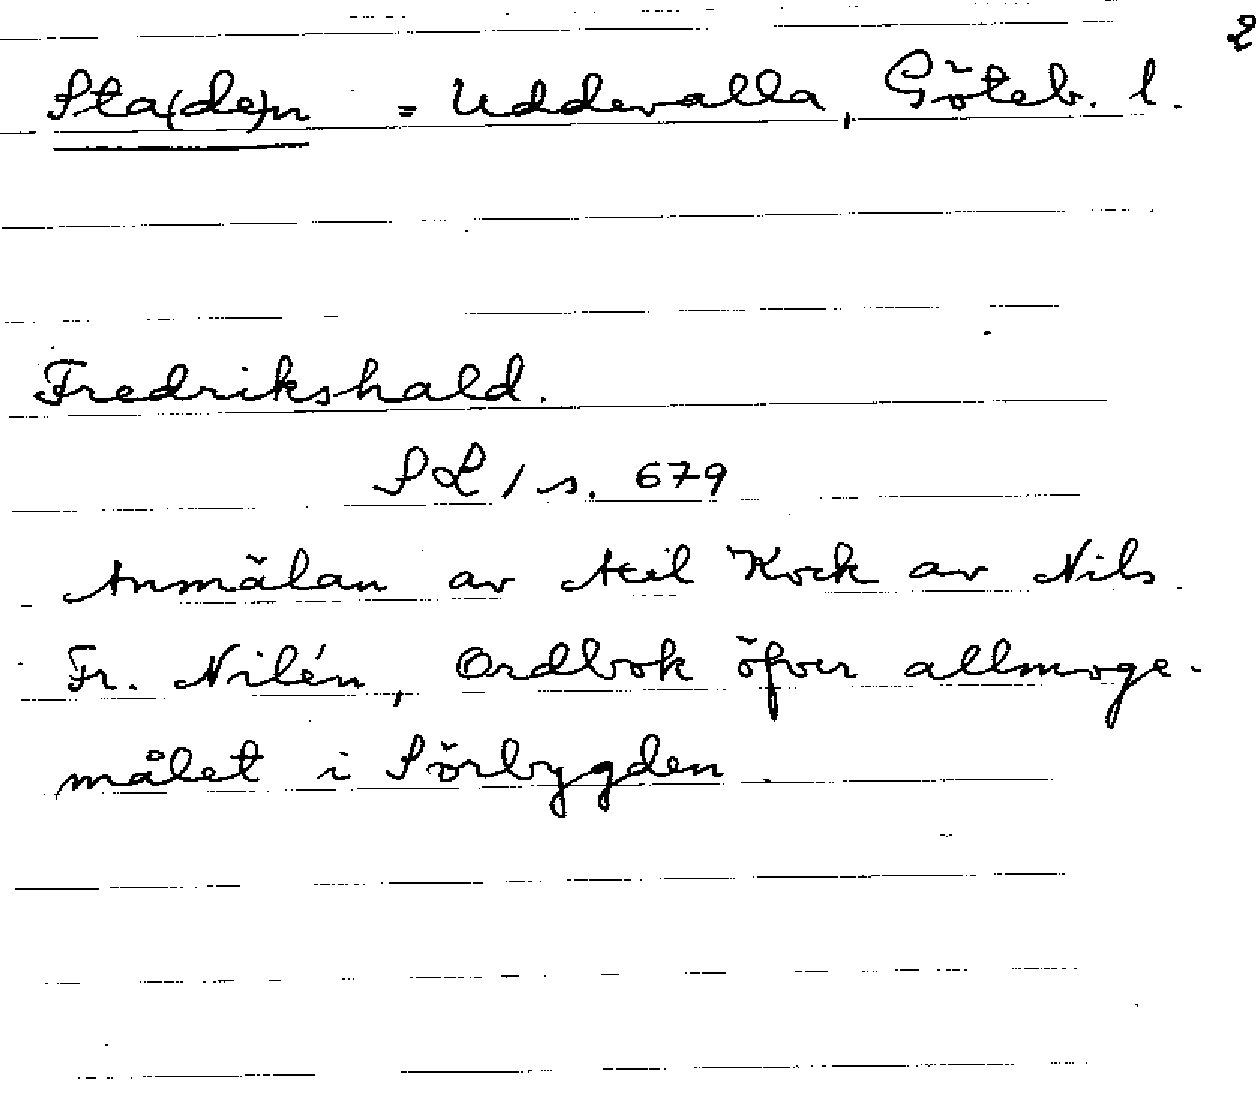 2
Sta(de)n = Uddevalla, Göteb. l.
Fredrikshald.
SL / s. 679
Anmälan av Axel Kock av Nils
Fr. Nilén, Ordbok öfver allmoge-
målet i Sörbygden